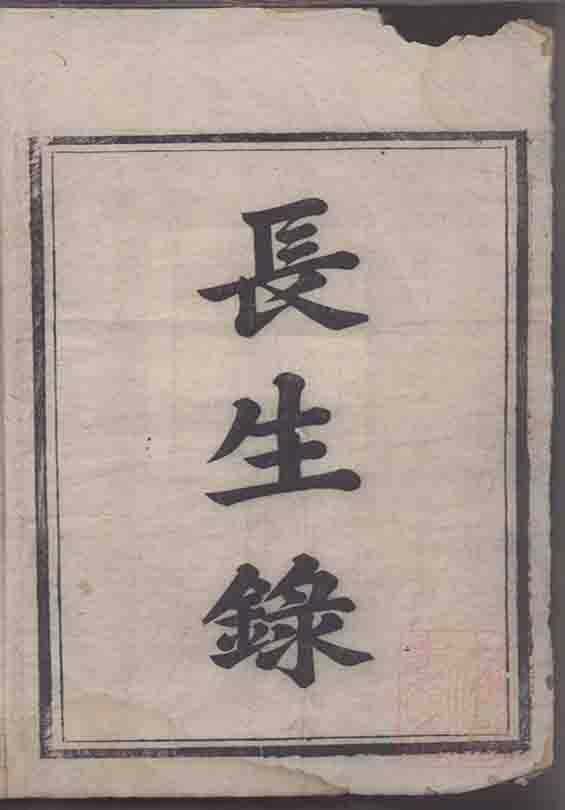 長生錄